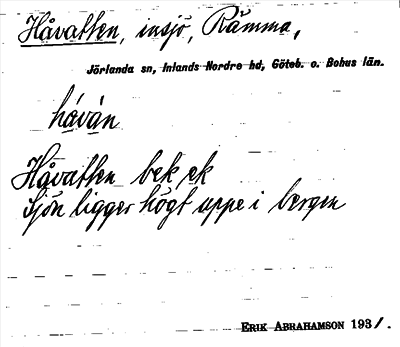 Håvatten, insjö, Rämma,
Jörlanda sn, Inlands Nordre hd, Göteb. o. Bohus län.
håvàn
Håvatten bek ek
Sjön ligger högt uppe i bergen
ERIK ABRAHAMSON 193/.